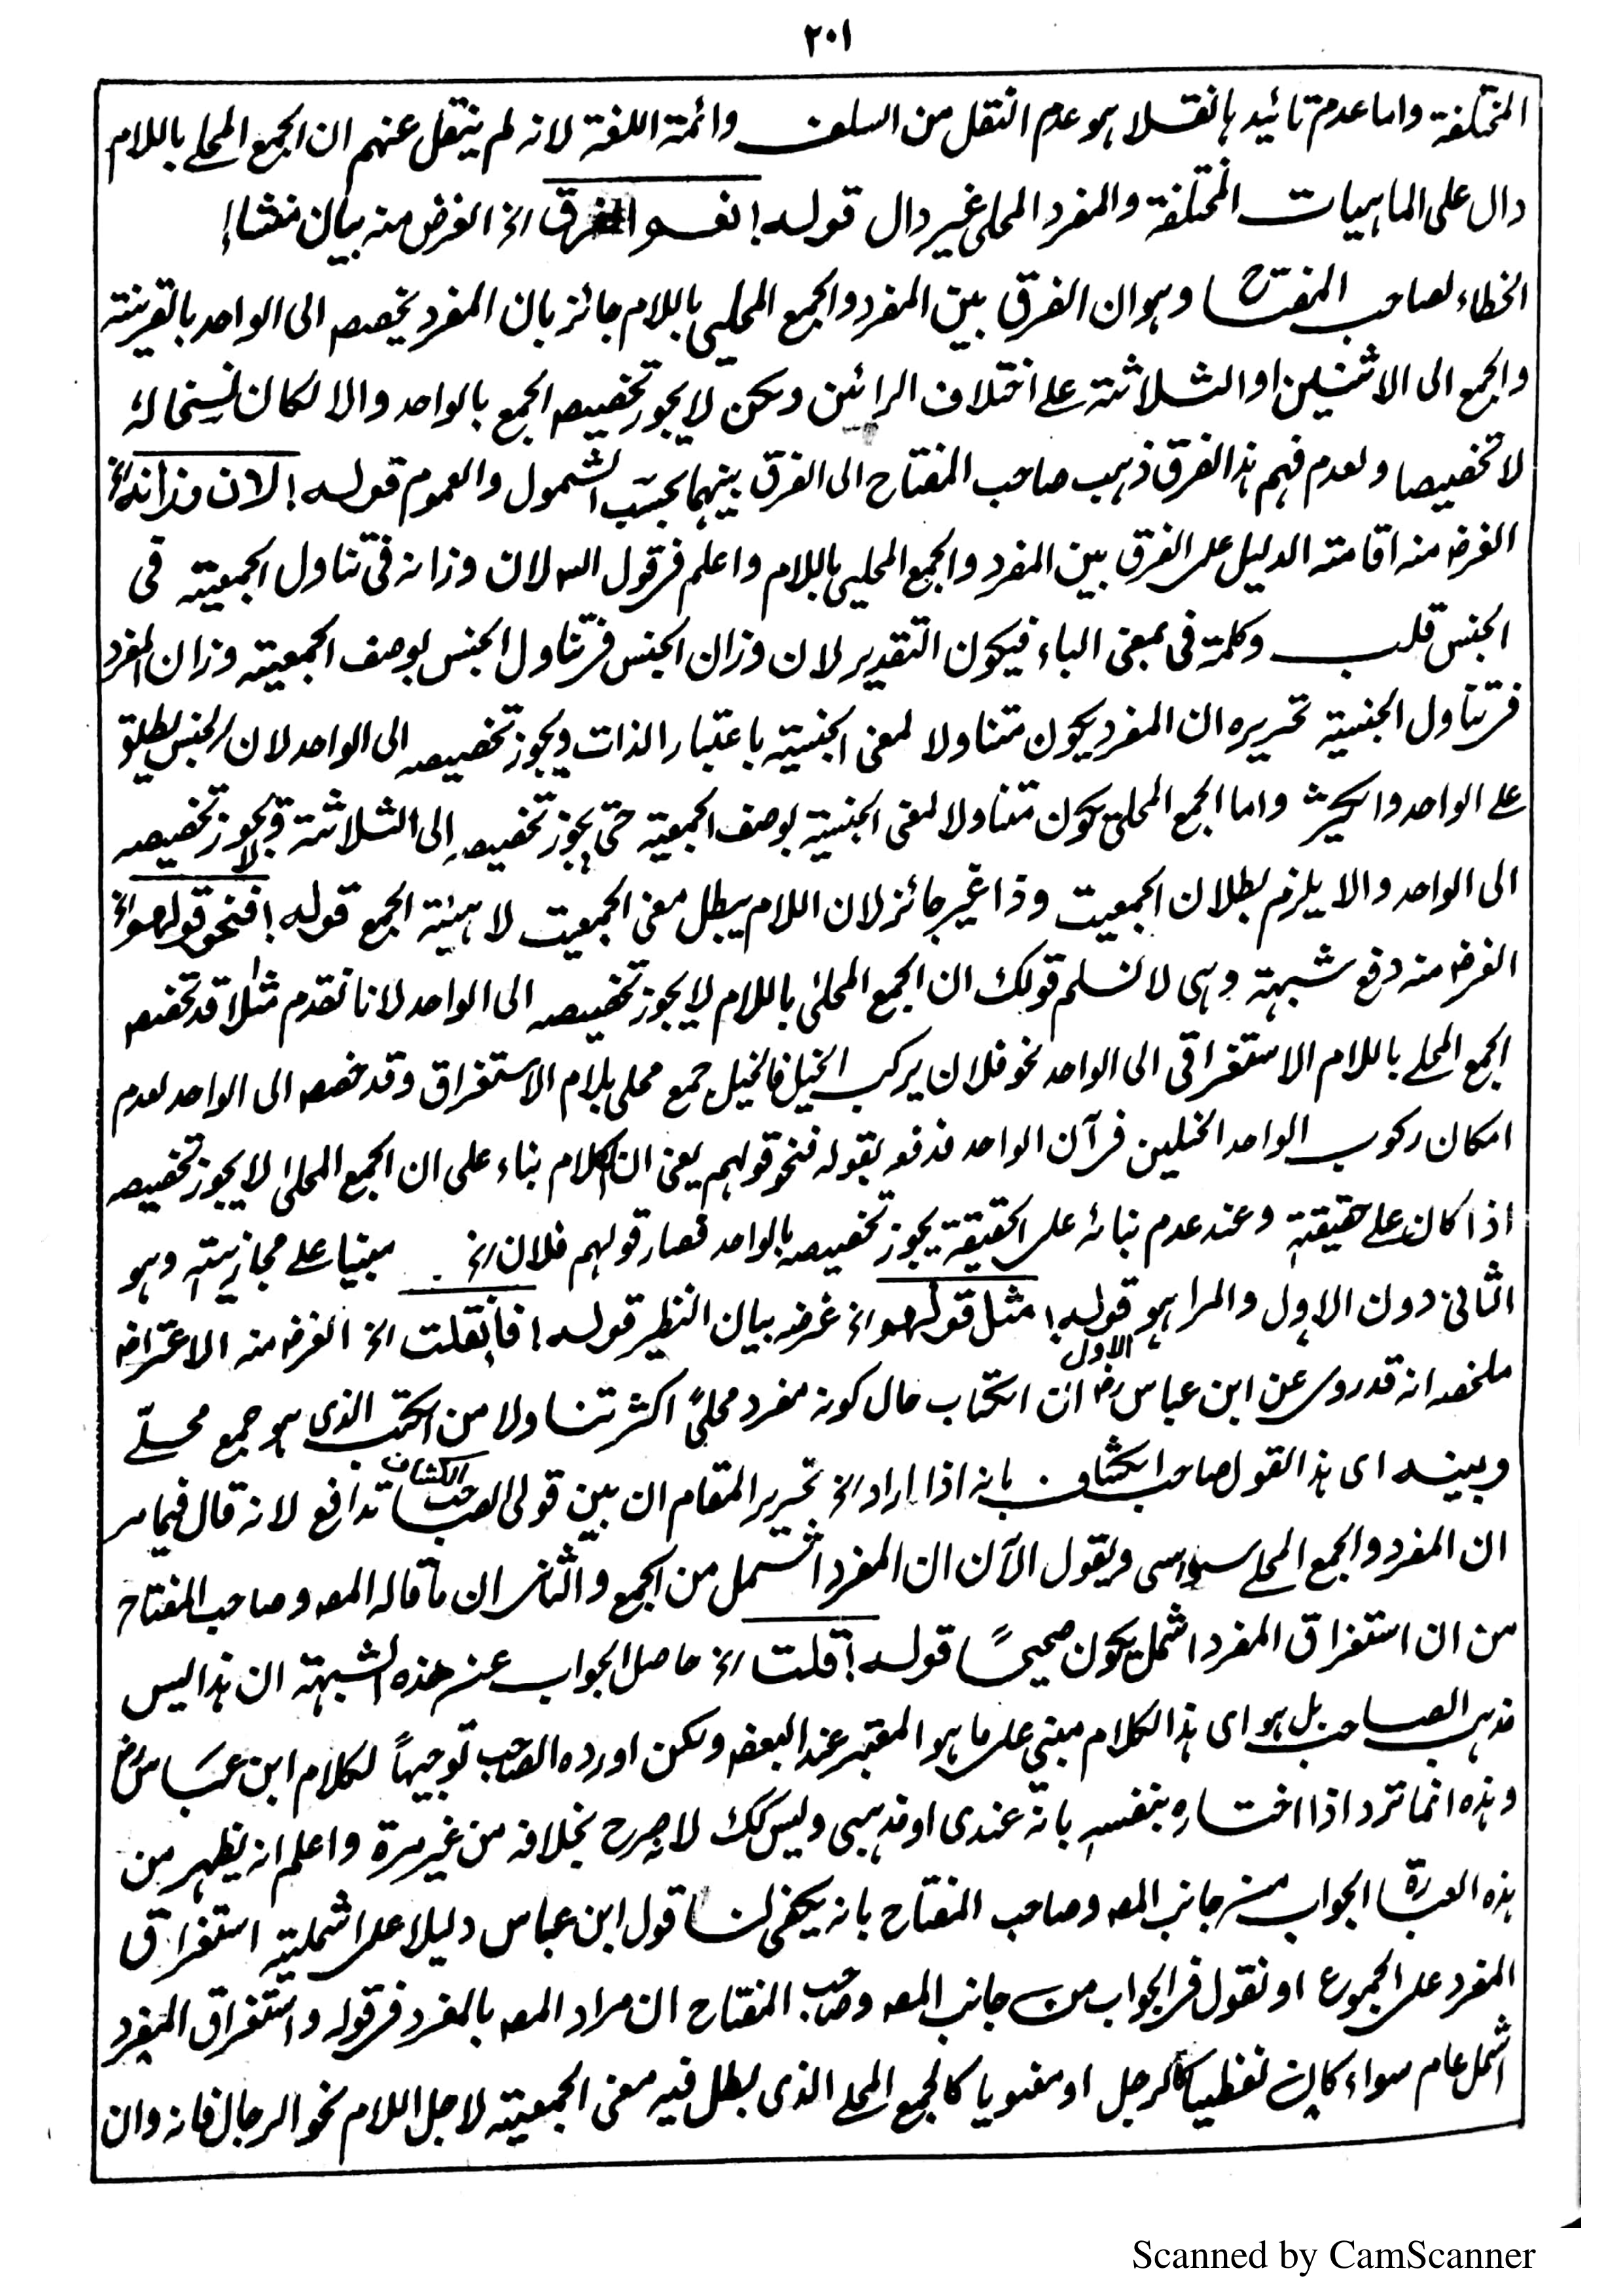 ٢٠١
المختلفة واما عدم تائيدها نقلا هو عدم النقل من السلف وائمة اللغة لانه لم ينقل عنهم ان الجمع المحلے باللام
دال على الماهيات المختلفة والمفرد المحلى غير دال قوله؛ نعم الفرق الخ الغرض منه بيان منشاء
الخطاء لصاحب المفتاح وهو ان الفرق بين المفرد والجمع المحلى باللام جائز بان المفرد يخصص الى الواحد بالقرينة
والجمع الى الاثنين او الثلاثة على اختلاف الرائين ولكن لا يجوز تخصيص الجمع بالواحد والا لكان نسخا له
لا تخصيصا ولعدم فهم هذا الفرق ذهب صاحب المفتاح الى الفرق بينهما بحسب الشمول والعموم قوله؛ لان وزانه الخ
الغرض منه اقامة الدليل على الفرق بين المفرد والجمع المحلى باللام واعلم فى قول الس لان وزانه فى تناول الجمعية فى
الجنس قلب وكلمة فى بمعنى الباء فيكون التقدير لان وزان الجنس فى تناول الجنس بوصف الجمعية وزان المفرد
فى تناول الجنسية تحريره ان المفرد يكون متناولا لمعنى الجنسية باعتبار الذات ويجوز تخصيصه الى الواحد لان الجنس يطلق
على الواحد والكثير واما الجمع المحلى يكون متناولا لمعنى الجنسية بوصف الجمعية حتى يجوز تخصيصه الى الثلاثة ولا يجوز تخصيصه
الى الواحد والا يلزم بطلان الجمعيت وذا غير جائز لان اللام يبطل معنى الجمعيت لا هيئة الجمع قوله؛ فنحو قولهم الخ
الغرض منه دفع شبهة وهى لا نسلم قولك ان الجمع المحلى باللام لا يجوز تخصيصه الى الواحد لانا نقدم مثلا قد تخصص
الجمع المحلے باللام الاستغراقى الى الواحد نحو فلان يركب الخيل فالخيل جمع محلى بلام الاستغراق وقد خصص الى الواحد لعدم
امكان ركوب الواحد الخيلين فى آن الواحد فدفعه بقوله فنحو قولهم يعنى ان الكلام بناء على ان الجمع المحلى لا يجوز تخصيصه
اذا كان على حقيقة وعند عدم بنائه على الحقيقة يجوز تخصيصه بالواحد فصار قولهم فلان الخ مبنيا على مجازيته وهو
الثانى دون الاول والمراد هو الاول قوله؛ مثل قولهم الخ غرضه بيان النظير قوله؛ فان قلت الخ الغرض منه الاعتراض
ملخصه انه قد روى عن ابن عباس رض ان الكتاب حال كونه مفرد محلىً اكثر تناولا من الكتب الذى هو جمع محلّے
وبينه اى هذا القول صاحب الكشاف بانه اذا اراد الخ تحرير المقام ان بين قولى الصاحب الكشاف تدافع لانه قال فيما مر
ان المفرد والجمع المحلے سواسى ويقول الآن ان المفرد اشمل من الجمع والثانى ان ما قاله المصـ وصاحب المفتاح
من ان استغراق المفرد اشمل يكون صحيحًا قوله؛ قلت الخ حاصل الجواب عن هذه الشبهة ان هذا ليس
مذهب الصاحب بل هو اى هذا الكلام مبنى على ما هو المعتبر عند البعض ولكن اورده الصاحب توجيهاً لكلام ابن عباس رض
وهذه انما ترد اذا اختاره بنفسه بانه عندى او مذهبى وليس كك لا صرح بخلافه من غير مرة واعلم انه يظهر من
هذه العبارة الجواب من جانب المصـ وصاحب المفتاح بانه يكفى لنا قول ابن عباس دليلا على اشملية استغراق
المفرد على الجموع او نقول فى الجواب من جانب المصـ وصاحب المفتاح ان مراد المصـ بالمفرد فى قوله واستغراق المفرد
اشمل عام سواء كان لفظيا كالرجل او معنويا كالجمع المحلے الذى بطل فيه معنى الجمعية لاجل اللام نحو الرجال فانه وان
Scanned by CamScanner